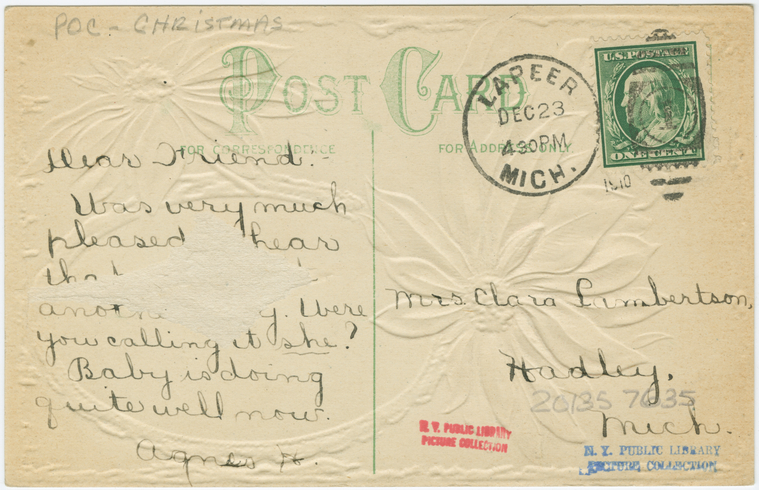 POC - CHRISTMAS
POST CARD
FOR CORRESPONDENCE
FOR ADDRESS ONLY
LAPEER
DEC 23
4 30 PM
MICH.
1910
U.S. POSTAGE
ONE CENT
Dear Friend:-
Was very much
pleased hear
that
y. Were
you calling it she?
Baby is doing
quite well now.
Agnes H.
Mrs. Clara Lambertson,
Hadley,
Mich.
20135 7635
N. Y. PUBLIC LIBRARY
PICTURE COLLECTION
N. Y. PUBLIC LIBRARY
PICTURE COLLECTION